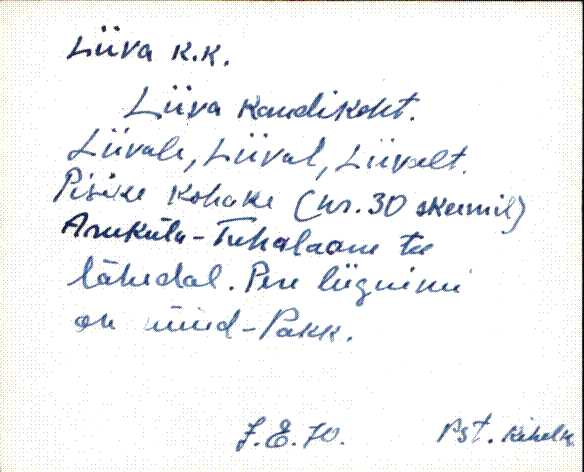 Liiva k.k.
Liiva kandikoht.
Liivale, Liival, Liivalt.
Pisike kohake (nr. 30 skeemil)
Arukula-Tuhalaane tee
lähedal. Pere liignimi
on nüüd-Pakk.
J.E.70. Pst. kihelk.